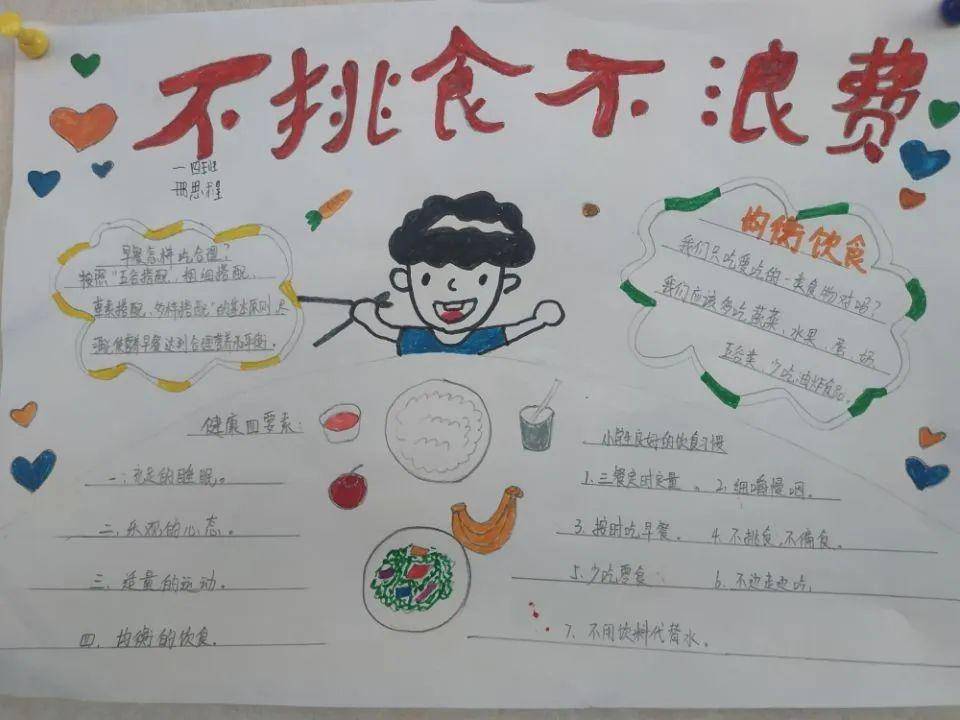 不挑食不浪费
一四班
邢思程
早餐怎样吃合理?
按照"五谷搭配、粗细搭配、
荤素搭配、多种搭配"的基本原则尽
可能使营养早餐达到合理营养和平衡。
均衡饮食
我们只吃爱吃的一类食物对吗?
我们应该多吃蔬菜、水果、蛋、奶、
五谷类、少吃油炸食品。
健康四要素:
一:充足的睡眠。
二、乐观的心态。
三、适量的运动。
四、均衡的饮食。
小学生良好的饮食习惯
1.三餐定时定量。 2.细嚼慢咽。
3.按时吃早餐。 4.不挑食,不偏食。
5.少吃零食 6.不边走边吃
7.不用饮料代替水。